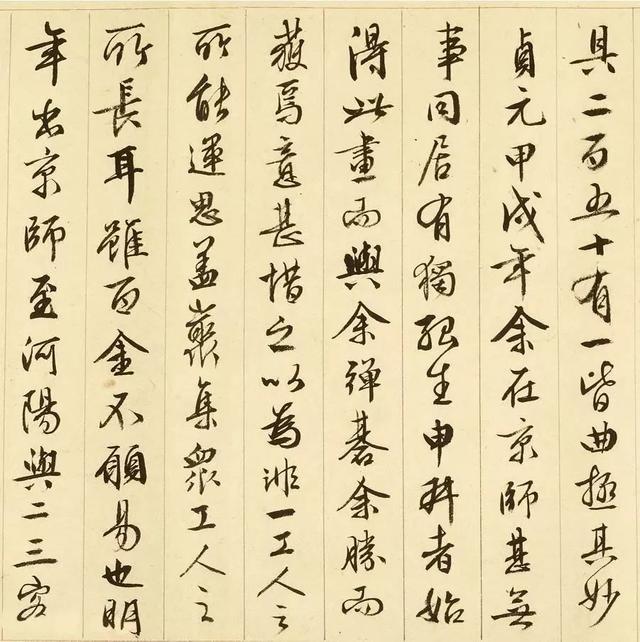 具二百五十有一皆曲極其妙
貞元甲戌年余在京師甚無
事同居有獨孤生申叔者始
得此畫而與余彈碁余勝而
獲焉意甚惜之以為非一工人之
所能運思蓋藂集眾工人之
所長耳雖百金不願易也明
年出京師至河陽與二三客